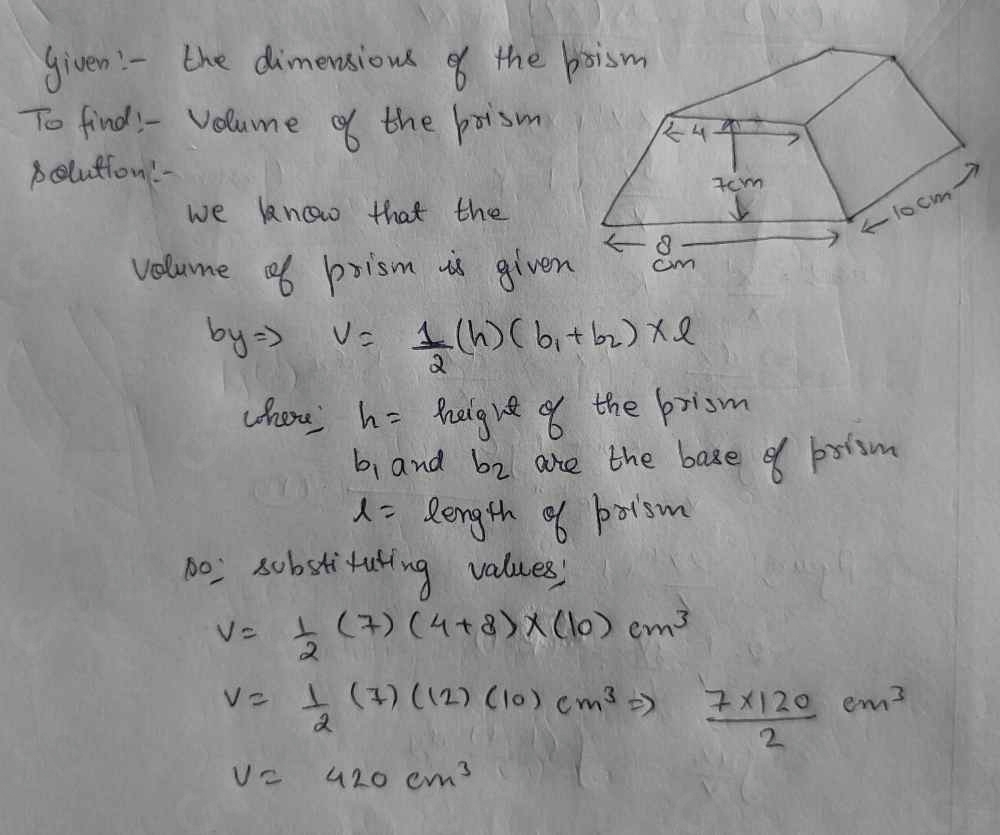 Given:- the dimensions of the prism
To find:- Volume of the prism
Solution:-
we know that the
Volume of prism is given
by => V = 1/2 (h) (b₁ + b₂) × l
where: h = height of the prism
b₁ and b₂ are the base of prism
l = length of prism
so: substituting values:
V = 1/2 (7) (4+8) × (10) cm³
V = 1/2 (7) (12) (10) cm³ => 7 × 120 / 2 cm³
V = 420 cm³
4
7cm
8
cm
10 cm